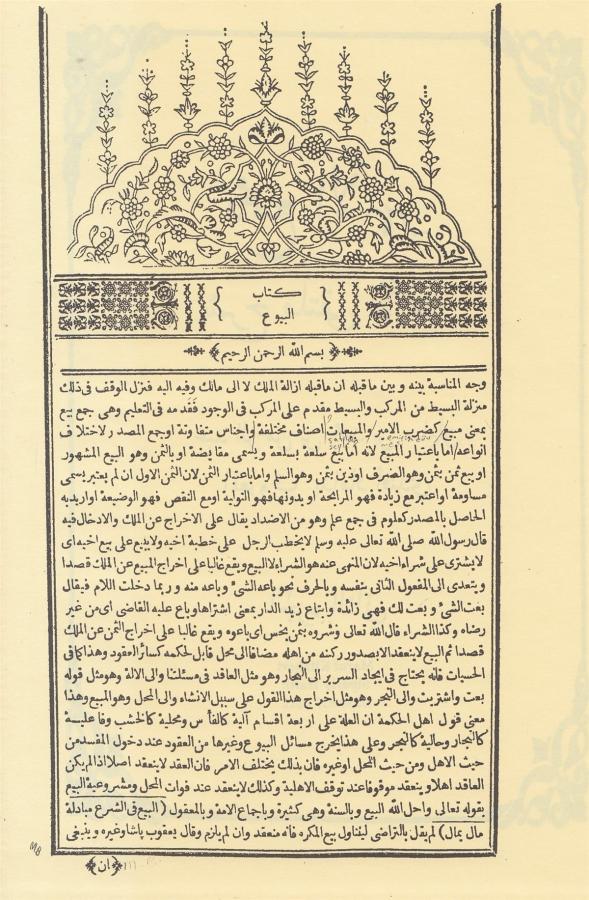 كتاب
البيوع
بسم الله الرحمن الرحيم
وجه المناسبة بينه وبين ماقبله ان ماقبله ازالة الملك لا الى مالك وفيه اليه فنزل الوقف فى ذلك
منزلة البسيط من المركب والبسيط مقدم على المركب فى الوجود فقدمه فى التعليم وهى جمع بيع
بمعنى مبيع كضرب الامير والمبيعات اصناف مختلفة واجناس متفاوتة اوجمع المصدر لاختلاف
انواعه اما باعتبار المبيع لانه اما بيع سلعة بسلعة ويسمى مقايضة او بالثمن وهو البيع المشهور
او بيع ثمن بثمن وهو الصرف اودين بثمن وهو السلم واما باعتبار الثمن لان الثمن الاول ان لم يعتبر يسمى
مساومة اواعتبر مع زيادة فهو المرابحة او بدونها فهو التولية اومع النقص فهو الوضيعة اواريد به
الحاصل بالمصدر كعلوم فى جمع علم وهو من الاضداد يقال على الاخراج عن الملك والادخال فيه
قال رسول الله صلى الله تعالى عليه وسلم لايخطب الرجل على خطبة اخيه ولايبع على بيع اخيه اى
لايشترى على شراء اخيه لان المنهى عنه هو الشراء لا البيع ويقع غالبا على اخراج المبيع عن الملك قصدا
ويتعدى الى المفعول الثانى بنفسه وبالحرف نحو باعه الشئ وباعه منه وربما دخلت اللام فيقال
بعت الشئ وبعت لك فهى زائدة وابتاع زيد الدار بمعنى اشتراها وباع عليه القاضى اى من غير
رضاه وكذا الشراء قال الله تعالى وشروه بثمن بخس اى باعوه ويقع غالبا على اخراج الثمن عن الملك
قصدا ثم البيع لاينعقد الابصدور ركنه من اهله مضافا الى محل قابل لحكمه كسائر العقود وهذا كما فى
الحسيات فانه يحتاج فى ايجاد السرير الى النجار وهو مثل العاقد فى مسئلتنا والى الالة وهو مثل قوله
بعت واشتريت والى النجر وهو مثل اخراج هذا القول على سبيل الانشاء والى المحل وهو المبيع وهذا
معنى قول اهل الحكمة ان العلة على اربعة اقسام آلية كالفأس ومحلية كالخشب وفاعلية
كالنجار وحالية كالنجر وعلى هذا يخرج مسائل البيوع وغيرها من العقود عند دخول المفسد من
حيث الاهل ومن حيث المحل اوغيره فان بذلك يختلف الامر فان العقد لاينعقد اصلا اذا لم يكن
العاقد اهلا وينعقد موقوفا عند توقف الاهلية وكذلك لاينعقد عند فوات المحل ومشروعية البيع
بقوله تعالى واحل الله البيع وبالسنة وهى كثيرة وباجماع الامة وبالمعقول ( البيع فى الشرع مبادلة
مال بمال) لم يقل بالتراضى ليتناول بيع المكره فانه منعقد وان لم يلزم وقال يعقوب پاشا وغيره وينبغى
ان